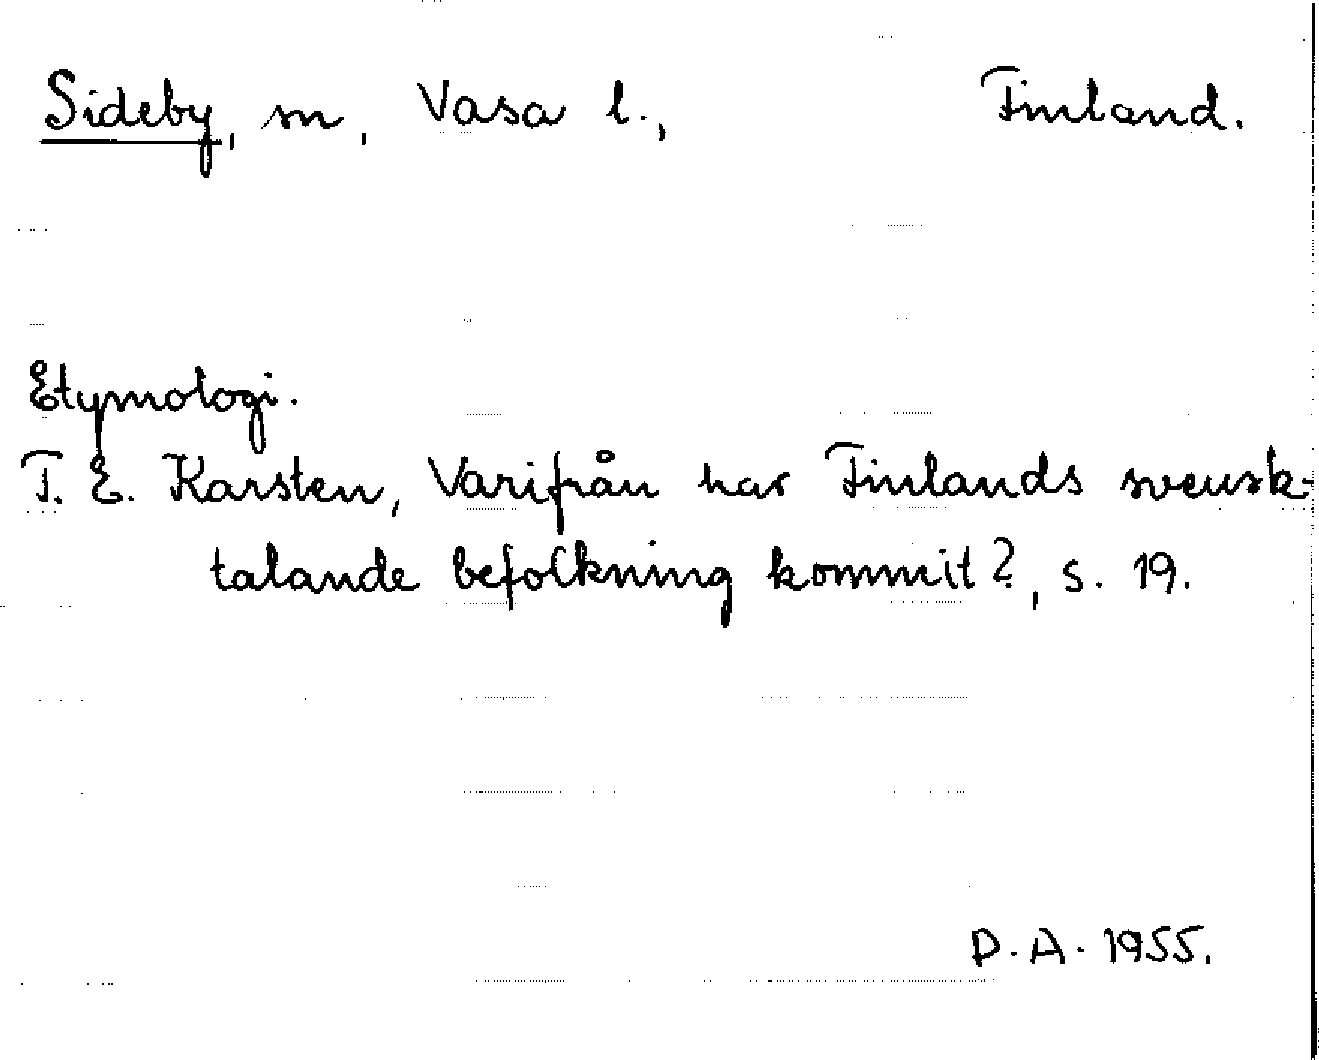 Sideby, sn, Vasa l., Finland.
Etymologi.
T. E. Karsten, Varifrån har Finlands svensk-
talande befolkning kommit?, s. 19.
D. A. 1955.